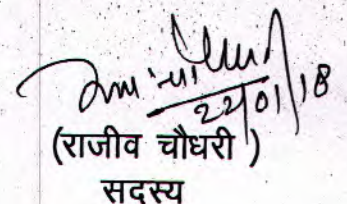 22/01/18
(राजीव चौधरी )
सदस्य